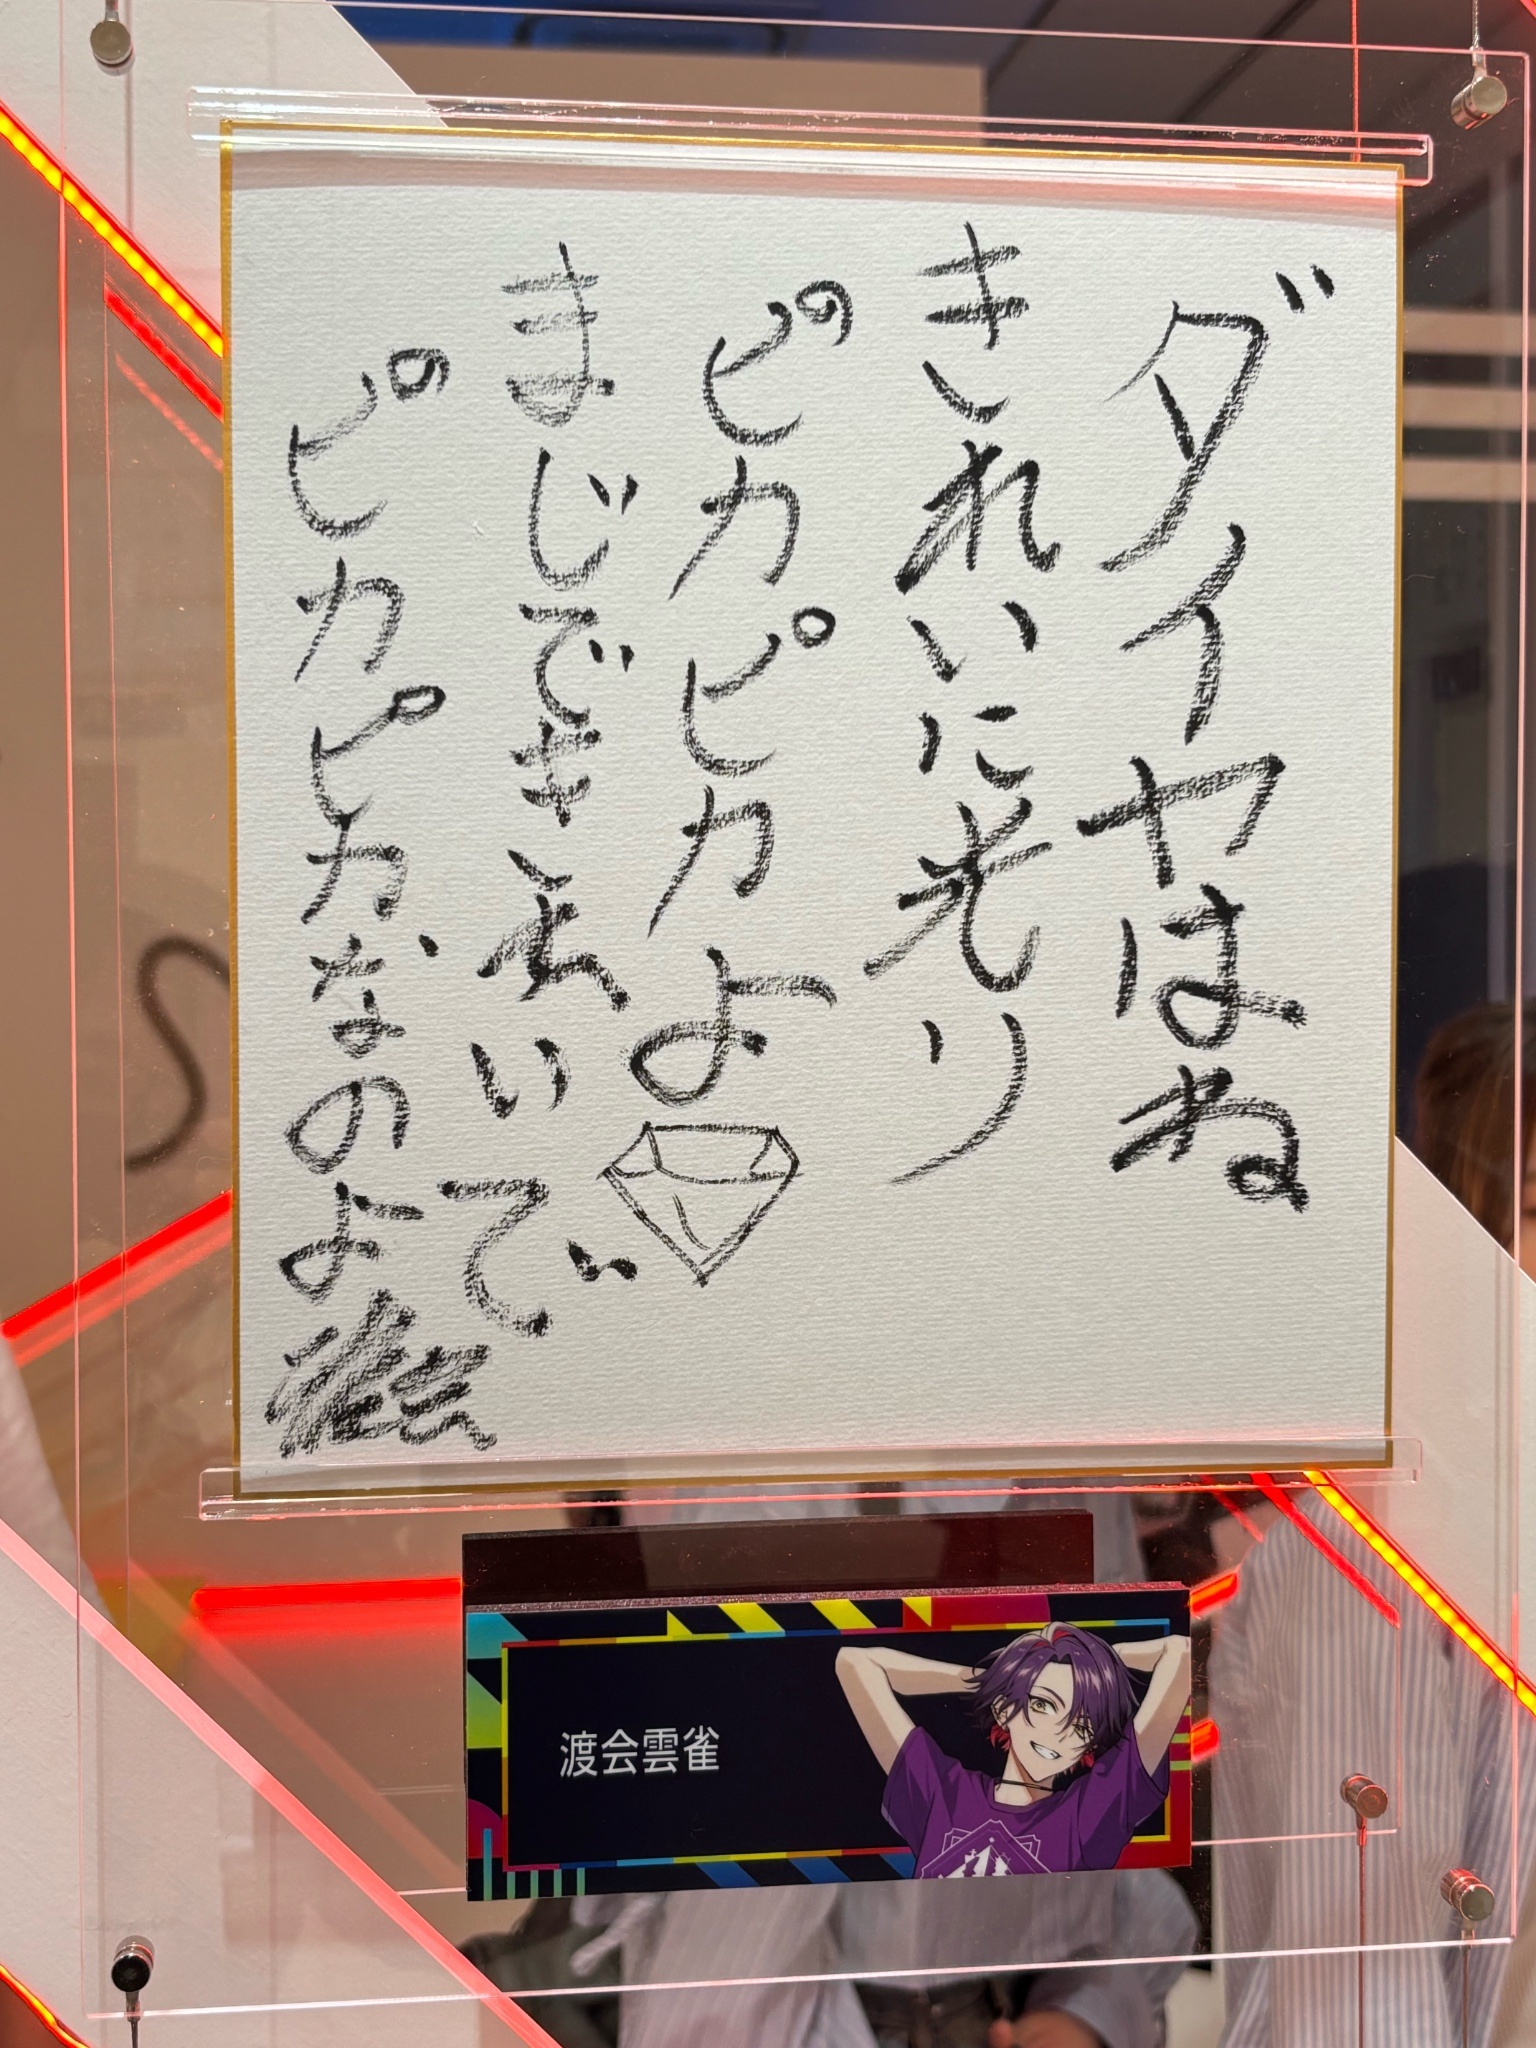 ダイヤはね
きれいに光り
ピカピカよ
まじできれいで
ピカピカなのよ
雲雀
渡会雲雀